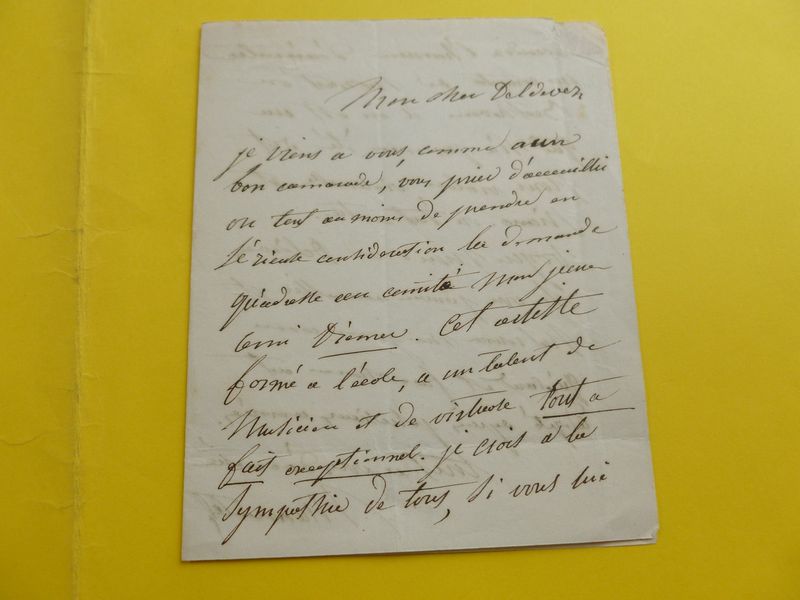 Mon cher Deldevez
je viens à vous, comme à un
bon camarade, vous prier d'accueillir
ou tout au moins de prendre en
sérieuse considération la demande
qu'adresse au comité mon jeune
ami Diémer. Cet artiste
formé à l'école, a un talent de
musicien et de virtuose tout à
fait exceptionnel. je crois à la
sympathie de tous, si vous lui